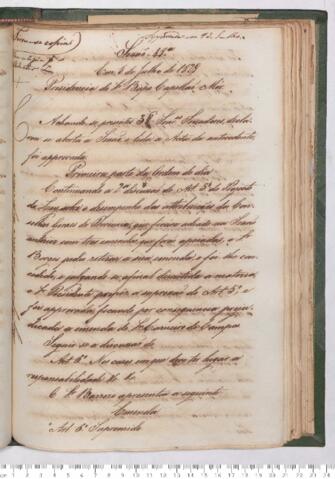 Sessão 48ª
Em 5 de Julho de 1828
Presidencia do Sr. Bispo Capellão Mór.
Achando-se presentes 38 Senres Senadores, decla-
rou se aberta a Sessão e lida a Acta da antecedente
foi approvada.
Primeira parte da Ordem do dia
Continuando a discussão do Art. 5º do Projecto
do desempenho das attribuições dos Con-
selhos Geraes de Provincia, que ficara adiado na Sessão
com tres emendas, que foram apoiadas, o Sr.
Borges pedio retirar a sua emenda, e foi lhe con-
cedido, e julgando-se afinal discutida a materia,
o Sr. Presidente propoz a supressão do Art. 5º, e
foi approvada, ficando por consequencia preju-
dicada a emenda do Sr. Carneiro de Campos
Seguio se a discussão do
Art. 6º No caso em que deva ter lugar a
responsabilidade &c. &c.
O Sr. Barroso apresentou a seguinte
Emenda
Art. 6º Supprimido